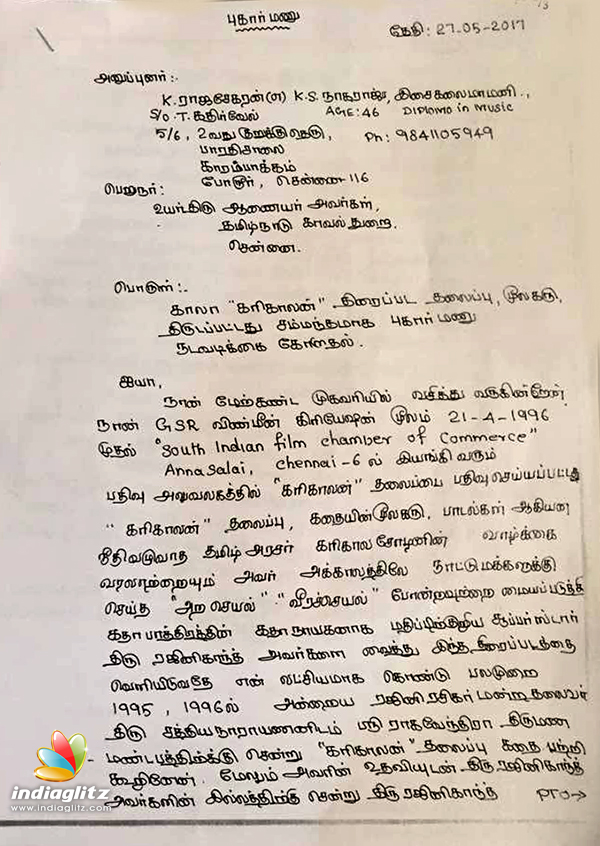 13
புகார் மனு
தேதி: 27-05-2017
அனுப்புனர்:-
K. ராஜசேகரன்(எ) K.S. நாகராஜா, இசைகலைமாமணி.,
S/o. T. கதிர்வேல் AGE: 46 Diploma in Music
5/6, 2வது குறுக்குதெரு, Ph: 9841105949
பாரதிசாலை
காரம்பாக்கம்
போரூர், சென்னை-116
பெறுநர்:
உயர்திரு ஆணையர் அவர்கள்,
தமிழ்நாடு காவல் துறை,
சென்னை.
பொருள்:-
காலா "கரிகாலன்" திரைப்பட தலைப்பு, மூலகரு,
திருடப்பட்டது சம்மந்தமாக புகார் மனு
நடவடிக்கை கோருதல்.
ஐயா,
நான் மேற்கண்ட முகவரியில் வசித்து வருகின்றேன்
நான் GSR விண்மீன் கிரியேஷன் மூலம் 21-4-1996
முதல் "South Indian film chamber of Commerce"
Anna Salai, Chennai-6 ல் இயங்கி வரும்
பதிவு அலுவலகத்தில் "கரிகாலன்" தலைப்பை பதிவு செய்யப்பட்டது
"கரிகாலன்" தலைப்பு, கதையின் மூலகரு, பாடல்கள் ஆகியன
நீதிவழுவாத தமிழ் அரசர் கரிகால சோழனின் வாழ்க்கை
வரலாற்றையும் அவர் அக்காலத்திலே நாட்டு மக்களுக்கு
செய்த "அற செயல்" "வீரச்செயல்" போன்றவற்றை மையப்படுத்தி
கதா பாத்திரத்தின் கதா நாயகனாக மதிப்பிற்குரிய சூப்பர் ஸ்டார்
திரு ரஜினிகாந்த் அவர்களை வைத்து இந்த திரைப்படத்தை
வெளியிடுவதே என் லட்சியமாக கொண்டு பலமுறை
1995, 1996ல் அன்றைய ரஜினி ரசிகர் மன்ற தலைவர்
திரு சத்திய நாராயணனிடம் ராகவேந்திரா திருமண
மண்டபத்திற்க்கு சென்று "கரிகாலன்" தலைப்பு கதை பற்றி
கூறினேன். மேலும் அவரின் உதவியுடன் திரு ரஜினிகாந்த்
அவர்களின் இல்லத்திற்கு சென்று திரு ரஜினிகாந்த் PTO→
indiaglitz
www.indiaglitz.com